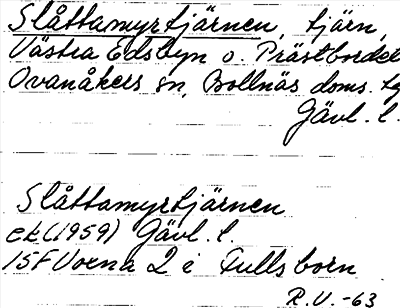 Slåttamyrtjärnen, tjärn,
Västra Edsbyn o. Prästbordet
Ovanåkers sn, Bollnäs doms. tg
Gävl. l.
Slåttamyrtjärnen
ek (1959) Gävl. l.
15F Voxna 2 i Fullsborn
R.U. -63